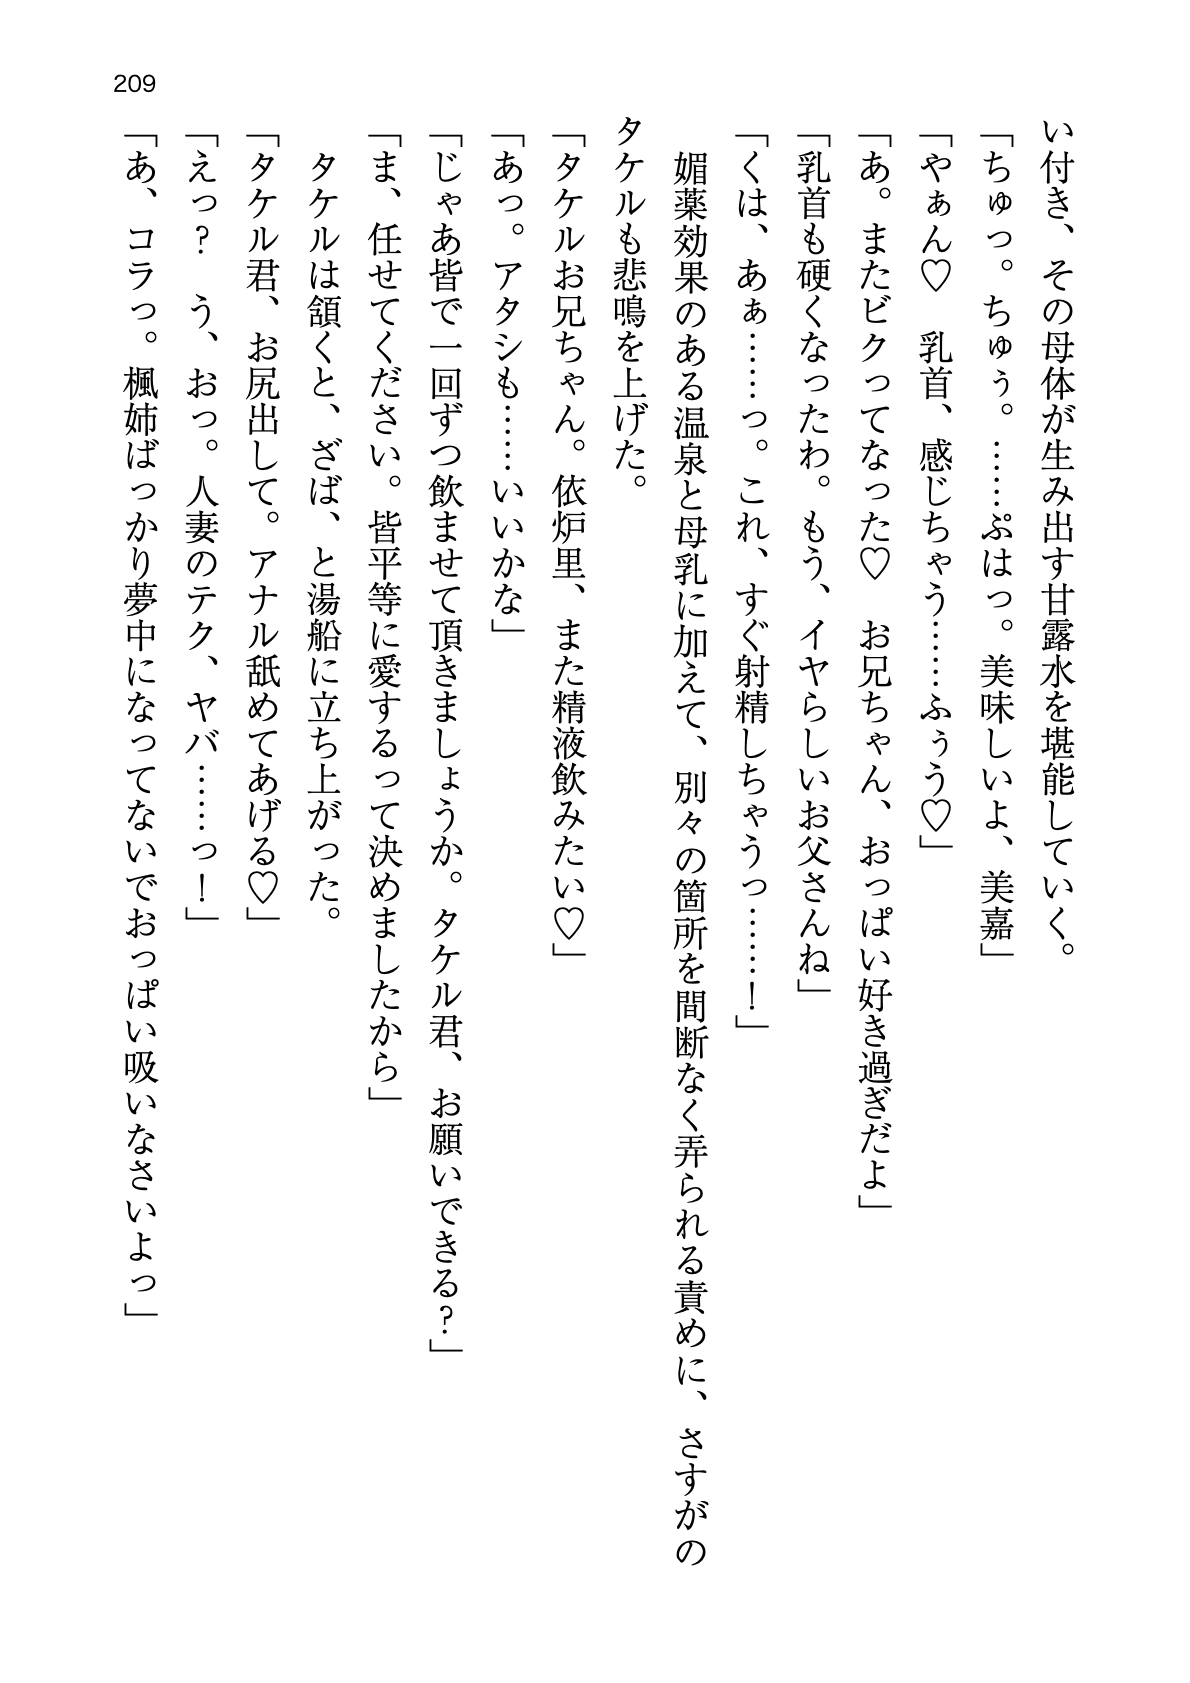 209
い付き、その母体が生み出す甘露水を堪能していく。
「ちゅっ。ちゅぅ。……ぷはっ。美味しいよ、美嘉」
「やぁん♡　乳首、感じちゃう……ふぅう♡」
「あ。またビクってなった♡　お兄ちゃん、おっぱい好き過ぎだよ」
「乳首も硬くなったわ。もう、イヤらしいお父さんね」
「くは、あぁ……っ。これ、すぐ射精しちゃうっ……！」
　媚薬効果のある温泉と母乳に加えて、別々の箇所を間断なく弄られる責めに、さすがの
タケルも悲鳴を上げた。
「タケルお兄ちゃん。依炉里、また精液飲みたい♡」
「あっ。アタシも……いいかな」
「じゃあ皆で一回ずつ飲ませて頂きましょうか。タケル君、お願いできる？」
「ま、任せてください。皆平等に愛するって決めましたから」
　タケルは頷くと、ざば、と湯船に立ち上がった。
「タケル君、お尻出して。アナル舐めてあげる♡」
「えっ？　う、おっ。人妻のテク、ヤバ……っ！」
「あ、コラっ。楓姉ばっかり夢中になってないでおっぱい吸いなさいよっ」